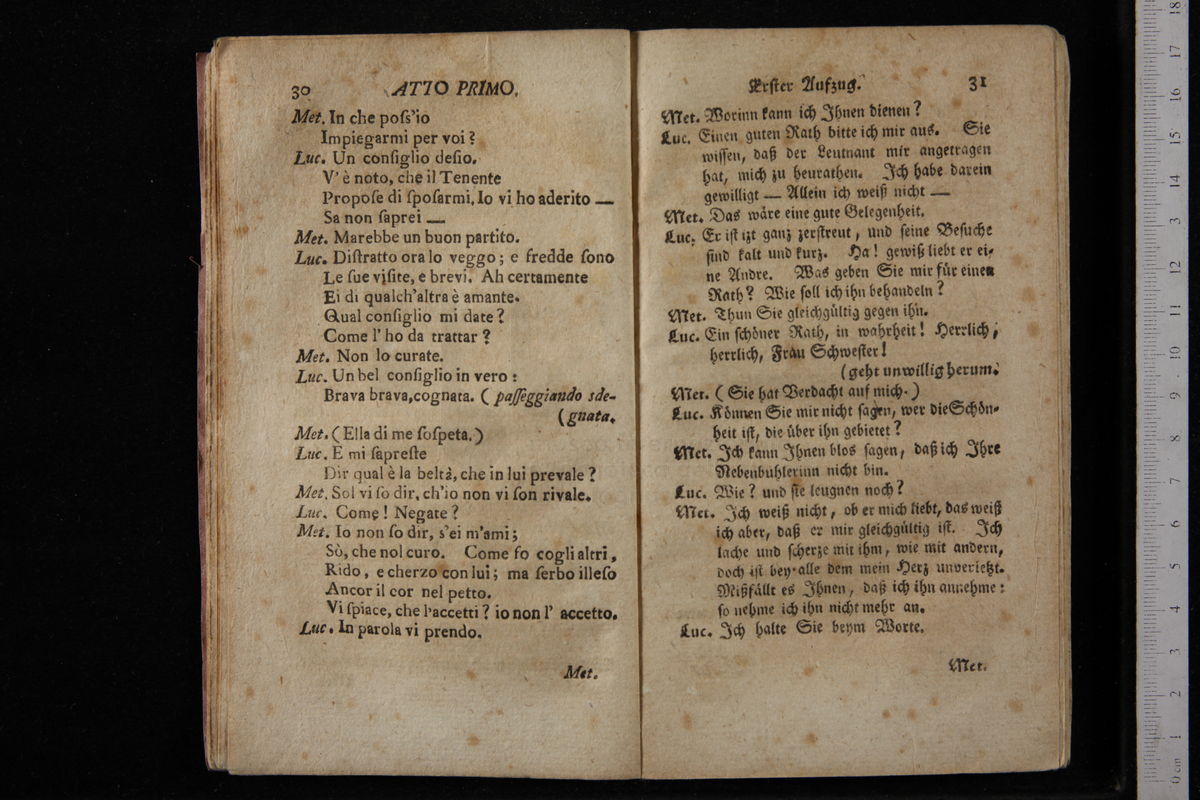 30 ATTO PRIMO.
Met. In che poſs'io
Impiegarmi per voi?
Luc. Un conſiglio deſio.
V' è noto, che il Tenente
Propoſe di ſpoſarmi, Io vi ho aderito —
Sa non ſaprei —
Met. Marebbe un buon partito.
Luc. Diſtratto ora lo veggo; e fredde ſono
Le ſue viſite, e brevi. Ah certamente
Ei di qualch'altra è amante.
Qual conſiglio mi date?
Come l' ho da trattar?
Met. Non lo curate.
Luc. Un bel conſiglio in vero:
Brava brava, cognata. (paſſeggiando sde-
(gnata.
Met. (Ella di me ſoſpeta.)
Luc. E mi ſapreſte
Dir qual è la beltà, che in lui prevale?
Met. Sol vi ſo dir, ch'io non vi ſon rivale.
Luc. Come! Negate?
Met. Io non ſo dir, s'ei m'ami;
Sò, che nol curo. Come fo cogli altri,
Rido, e cherzo con lui; ma ſerbo illeſo
Ancor il cor nel petto.
Vi ſpiace, che l'accetti? io non l' accetto.
Luc. In parola vi prendo.
Met.
Erſter Aufzug. 31
Met. Worinn kann ich Ihnen dienen?
Luc. Einen guten Rath bitte ich mir aus. Sie
wiſſen, daß der Leutnant mir angetragen
hat, mich zu heurathen. Ich habe darein
gewilligt — Allein ich weiß nicht —
Met. Das wäre eine gute Gelegenheit.
Luc. Er iſt izt ganz zerſtreut, und ſeine Beſuche
ſind kalt und kurz. Ha! gewiß liebt er ei-
ne Andre. Was geben Sie mir für einen
Rath? Wie ſoll ich ihn behandeln?
Met. Thun Sie gleichgültig gegen ihn.
Luc. Ein ſchöner Rath, in wahrheit! Herrlich,
herrlich, Frau Schweſter!
(geht unwillig herum.
Met. (Sie hat Verdacht auf mich.)
Luc. Können Sie mir nicht ſagen, wer die Schön-
heit iſt, die über ihn gebietet?
Met. Ich kann Ihnen blos ſagen, daß ich Ihre
Nebenbuhlerinn nicht bin.
Luc. Wie? und ſie leugnen noch?
Met. Ich weiß nicht, ob er mich liebt, das weiß
ich aber, daß er mir gleichgültig iſt. Ich
lache und ſcherze mit ihm, wie mit andern,
doch iſt bey alle dem mein Herz unverletzt.
Mißfällt es Ihnen, daß ich ihn annehme:
ſo nehme ich ihn nicht mehr an.
Luc. Ich halte Sie beym Worte.
Met.
0 cm 1 2 3 4 5 6 7 8 9 10 11 12 13 14 15 16 17 18